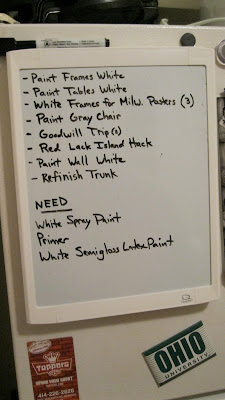 - Paint Frames White
- Paint Tables White
- White Frames for Milw. Posters (3)
- Paint Gray Chair
- Goodwill Trip(s)
- Red Lack Island Hack
- Paint Wall White
- Refinish Trunk
NEED
White Spray Paint
Primer
White Semigloss Latex Paint
Toppers
414-226-2626
OHIO
UNIVERSITY